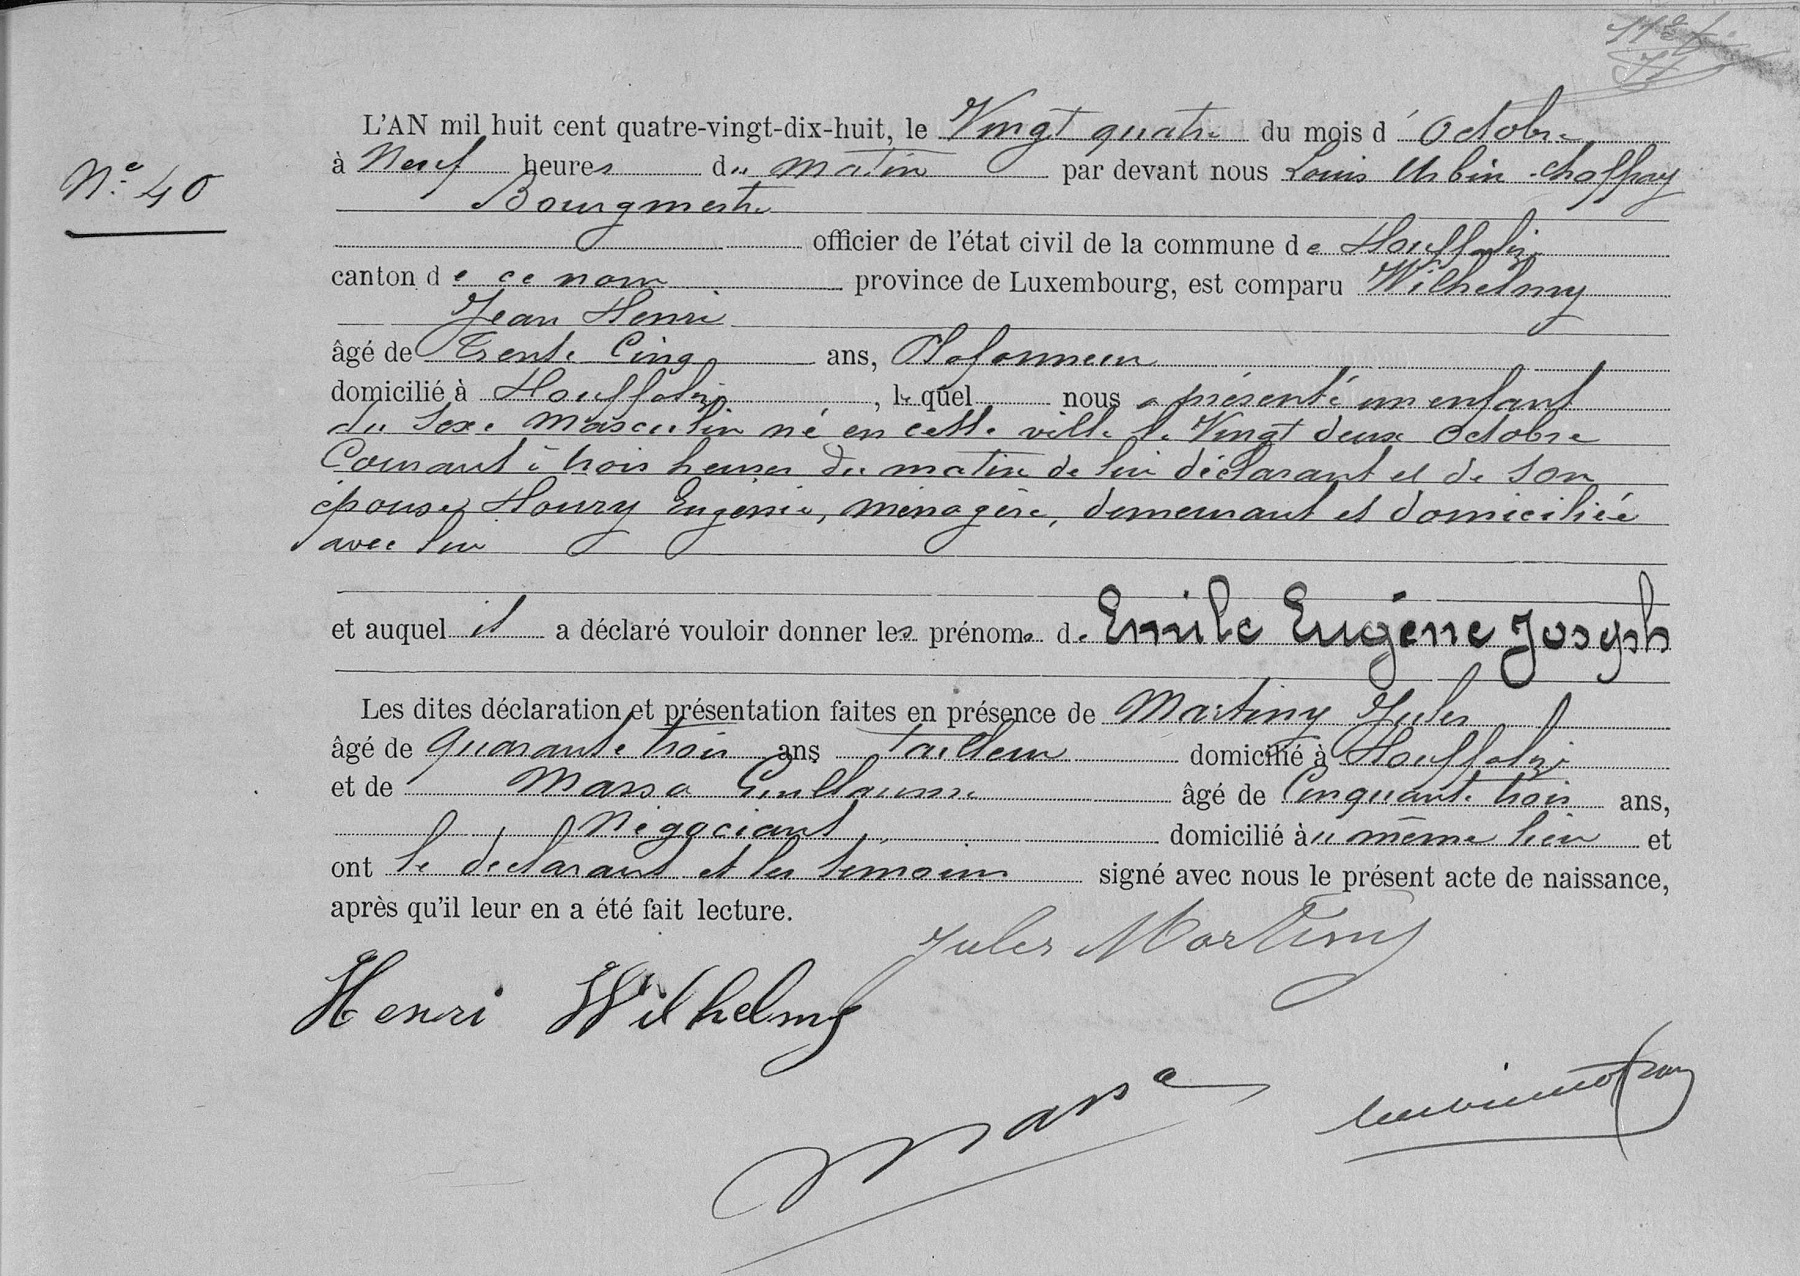 L'AN mil huit cent quatre-vingt-dix-huit, le Vingt quatre du mois d'Octobre
N° 40
à Neuf heures du matin par devant nous Louis Urbin Chaffray
Bourgmestre
officier de l'état civil de la commune de Houffalize
canton de ce nom province de Luxembourg, est comparu Wilhelmy
Jean Henri
âgé de Trente Cinq ans, Plafonneur
domicilié à Houffalize, lequel nous a présenté un enfant
du sexe masculin né en cette ville le Vingt deux Octobre
Courant à trois heures du matin de lui déclarant et de son
épouse Houry Eugénie, ménagère, demeurant et domiciliée
avec lui
et auquel il a déclaré vouloir donner les prénoms de Emile Eugène Joseph
Les dites déclaration et présentation faites en présence de Martiny Jules
âgé de quarante trois ans tailleur domicilié à Houffalize
et de Massa Guillaume âgé de Cinquante trois ans,
Négociant domicilié au même lieu et
ont le déclarant et les témoins signé avec nous le présent acte de naissance,
après qu'il leur en a été fait lecture.
Jules Martiny
Henri Wilhelmy
Massa